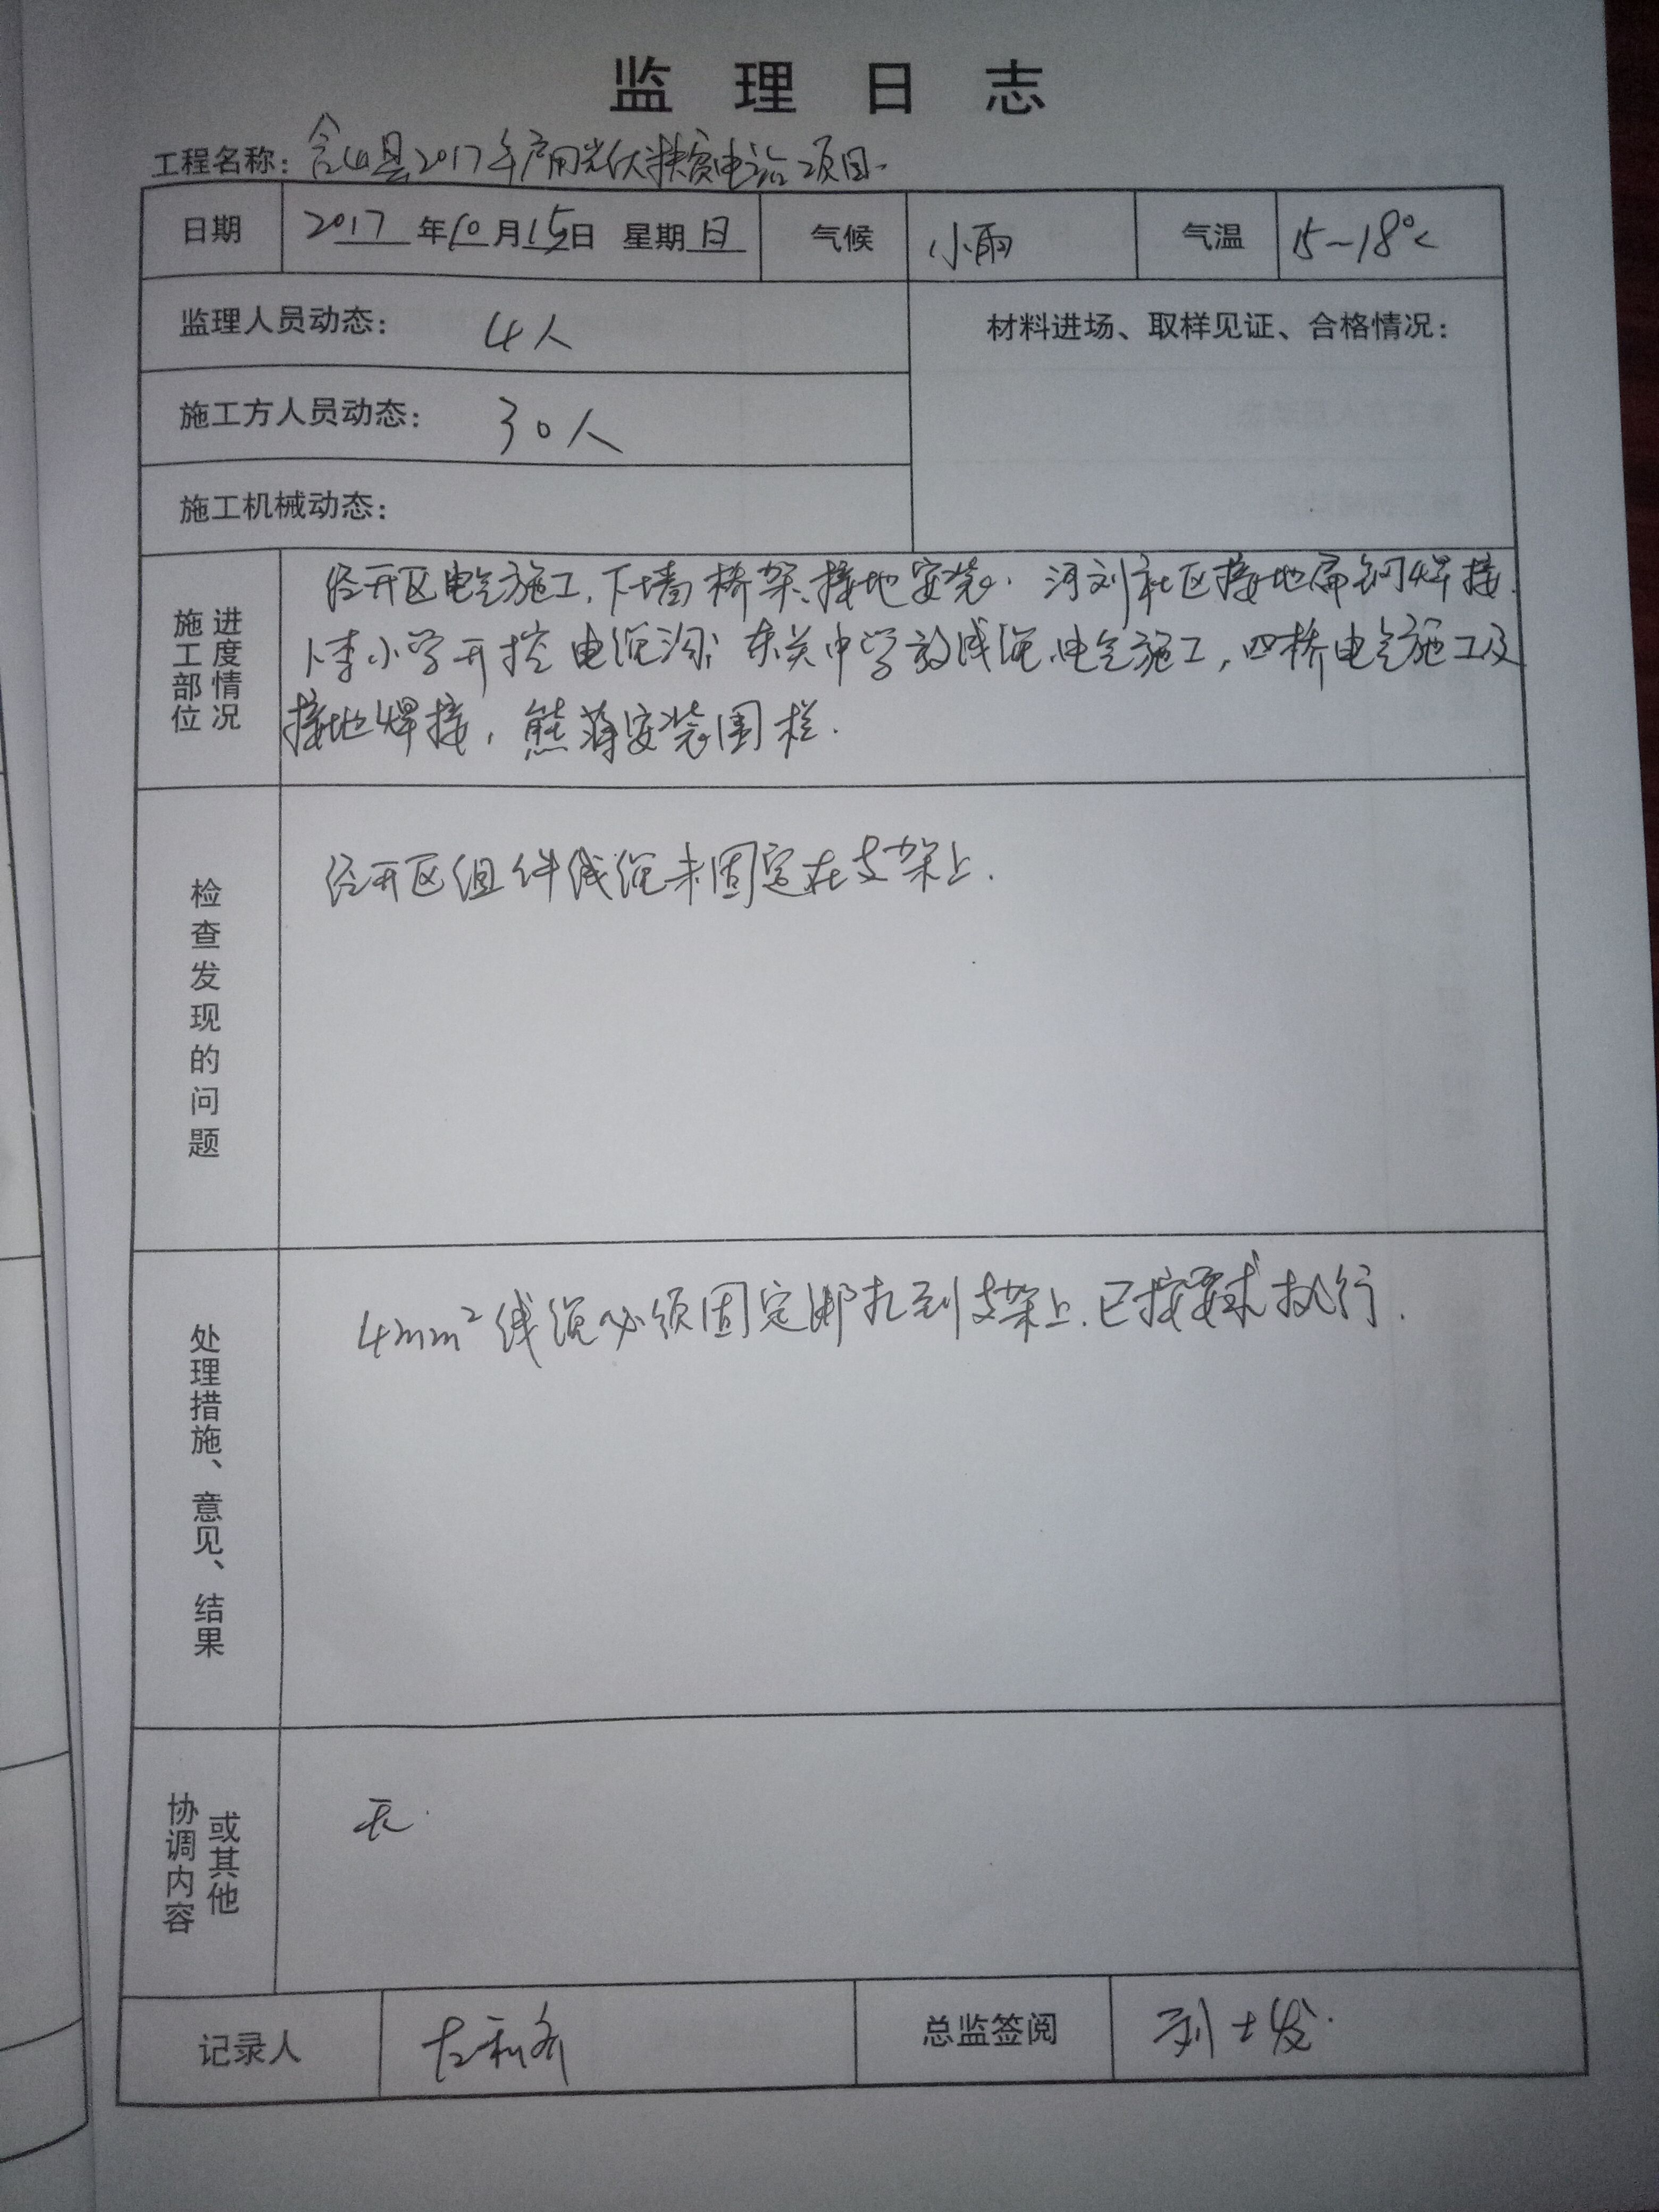 监理日志
工程名称：含山县2017年户用光伏扶贫电站项目.
日期 2017年10月15日 星期日 气候 小雨 气温 15~18℃
监理人员动态： 4人 材料进场、取样见证、合格情况：
施工方人员动态： 30人
施工机械动态：
施工部位进度情况
经开区电气施工,下墙桥架、接地安装. 河刘社区接地扁钢焊接.
小学开挖电缆沟; 东关中学放线缆,电气施工,四桥电气施工及
接地焊接,熊蒋安装围栏.
检查发现的问题
经开区组件线缆未固定在支架上.
处理措施、意见、结果
4mm²线缆必须固定绑扎到支架上.已按要求执行.
协调内容或其他
无.
记录人 总监签阅 刘士发.